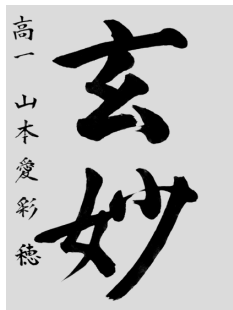 玄妙
高一 山本愛彩穂